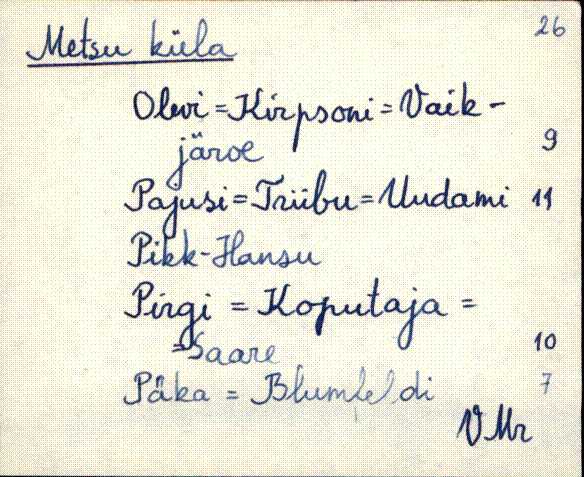 26
Metsu küla
Olevi = Kirpsoni = Vaik-
järve 9
Pajusi = Triibu = Uudami 11
Pikk-Hansu
Pirgi = Koputaja =
= Saare 10
Päka = Blumfeldi 7
VMr